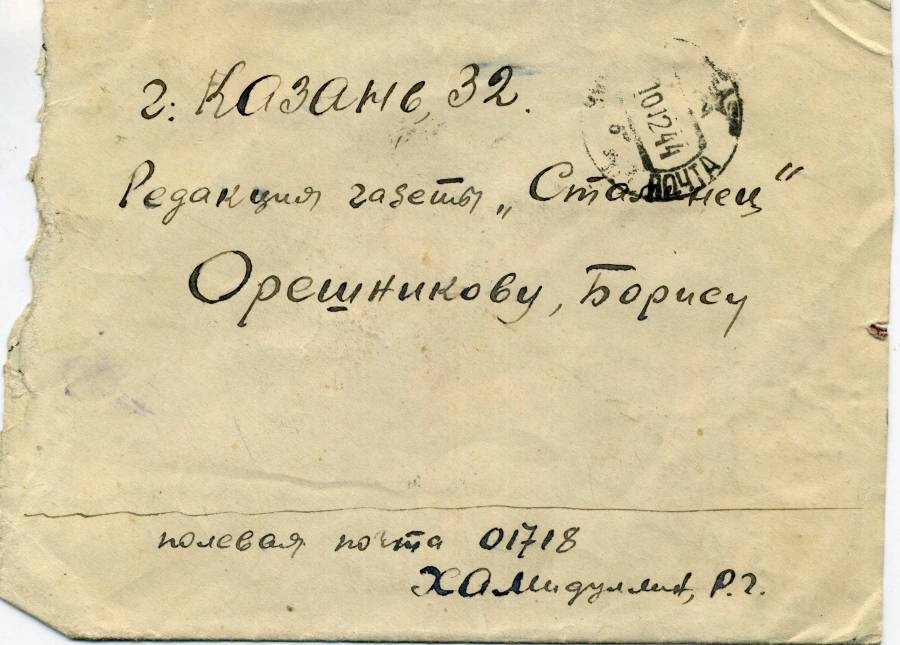 г. Казань, 32.
10 12 44
ПОЧТА
Редакция газеты „Сталинец“
Орешникову, Борису
полевая почта 01718
Хамидуллин, Р. Г.